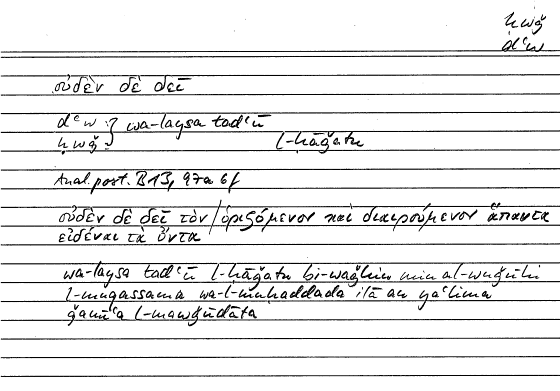 ḥwǧ
dʿw
οὐδὲν δὲ δεῖ
dʿw
ḥwǧ } wa-laysa tadʿū l-ḥāǧatu
Anal. post. B 13, 97a 6f
οὐδὲν δὲ δεῖ τὸν / ὁριζόμενον καὶ διαιρούμενον ἅπαντα
εἰδέναι τὰ ὄντα
wa-laysa tadʿū l-ḥāǧatu bi-waǧhin min al-wuǧūhi
l-muqassama wa-l-muḥaddada ilā an yaʿlima
ǧamīʿa l-mawǧūdāta